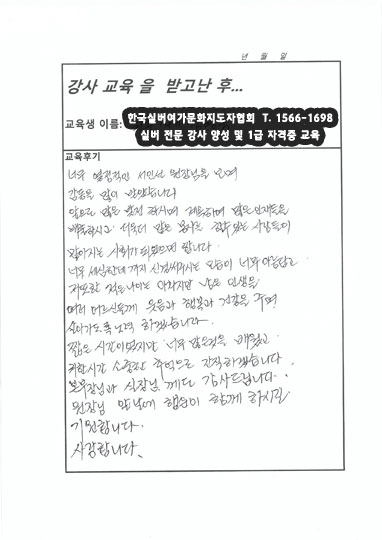 년 월 일
강사 교육 을 받고난 후...
교육생 이름:
한국실버여가문화지도자협회 T. 1566-1698
실버 전문 강사 양성 및 1급 자격증 교육
교육후기
너무 열정적인 서인선 원장님을 보며
감동을 많이 받았습니다
앞으로 많은 발전 하시며 많은 인재들을
많은 봉사를 할수 있는 사람들이
많아지는 사회가 되었으면 합니다.
너무 세심한데 까지 신경써주시는 모습이 너무 아름답고
저 또한 적은 나이는 아니지만 남은 인생을
여러 어르신들께 웃음과 행복과 건강을 주며
살아가도록 노력 하겠습니다.
짧은 시간이었지만 너무 많은것을 배웠고
귀한시간 소중한 추억으로 간직하겠습니다.
본부장님과 실장님께도 감사드립니다.
원장님 앞날에 행운이 함께 하시길
기원합니다.
사랑합니다.